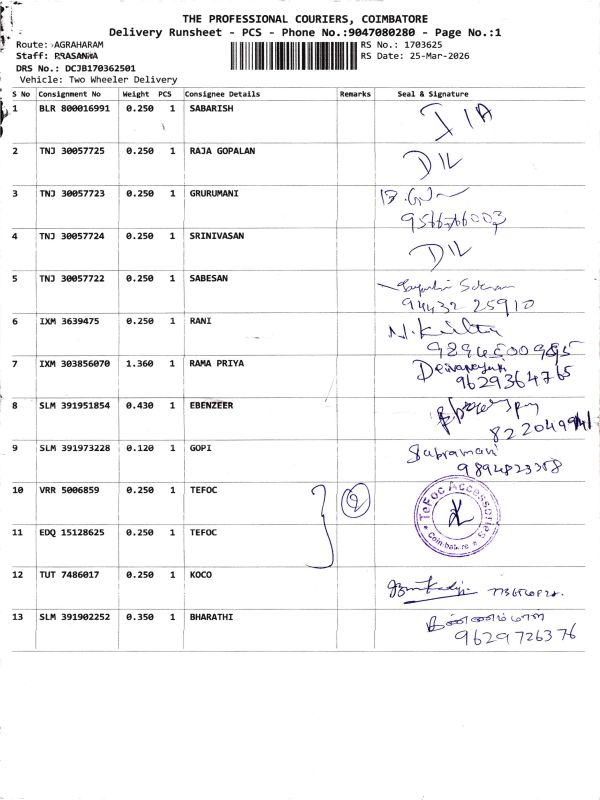 THE PROFESSIONAL COURIERS, COIMBATORE
Delivery Runsheet - PCS - Phone No.:9047080280 - Page No.:1
Route: AGRAHARAM RS No.: 1703625
Staff: PRASANNA RS Date: 25-Mar-2026
DRS No.: DCJB170362501
Vehicle: Two Wheeler Delivery
S No Consignment No Weight PCS Consignee Details Remarks Seal & Signature
1 BLR 800016991 0.250 1 SABARISH
2 TNJ 30057725 0.250 1 RAJA GOPALAN DIL
3 TNJ 30057723 0.250 1 GRURUMANI
9566766003
4 TNJ 30057724 0.250 1 SRINIVASAN DIL
5 TNJ 30057722 0.250 1 SABESAN
94432 25910
6 IXM 3639475 0.250 1 RANI
7 IXM 303856070 1.360 1 RAMA PRIYA
9629364765
8 SLM 391951854 0.430 1 EBENZEER
9 SLM 391973228 0.120 1 GOPI Subramani
9894823358
10 VRR 5006859 0.250 1 TEFOC 2 TeFoc Accessories
11 EDQ 15128625 0.250 1 TEFOC Coimbatore
12 TUT 7486017 0.250 1 KOCO
13 SLM 391902252 0.350 1 BHARATHI
9629726376